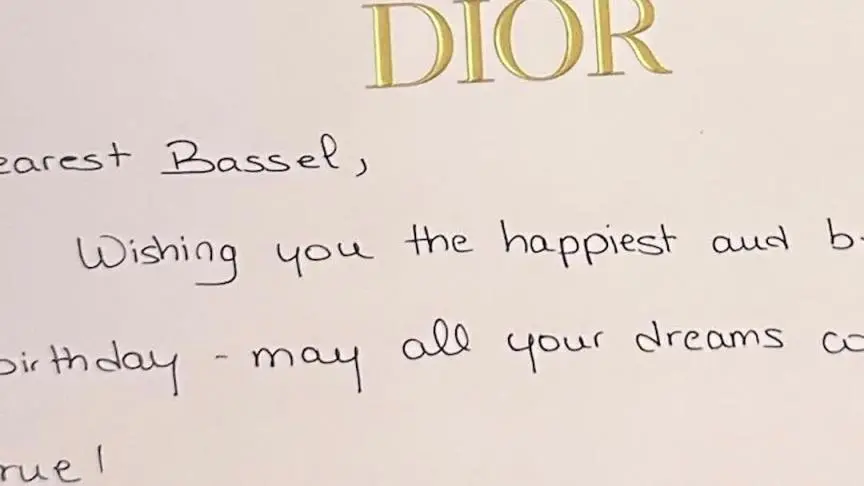 DIOR
earest Bassel,
Wishing you the happiest and b
birthday - may all your dreams co
rue!